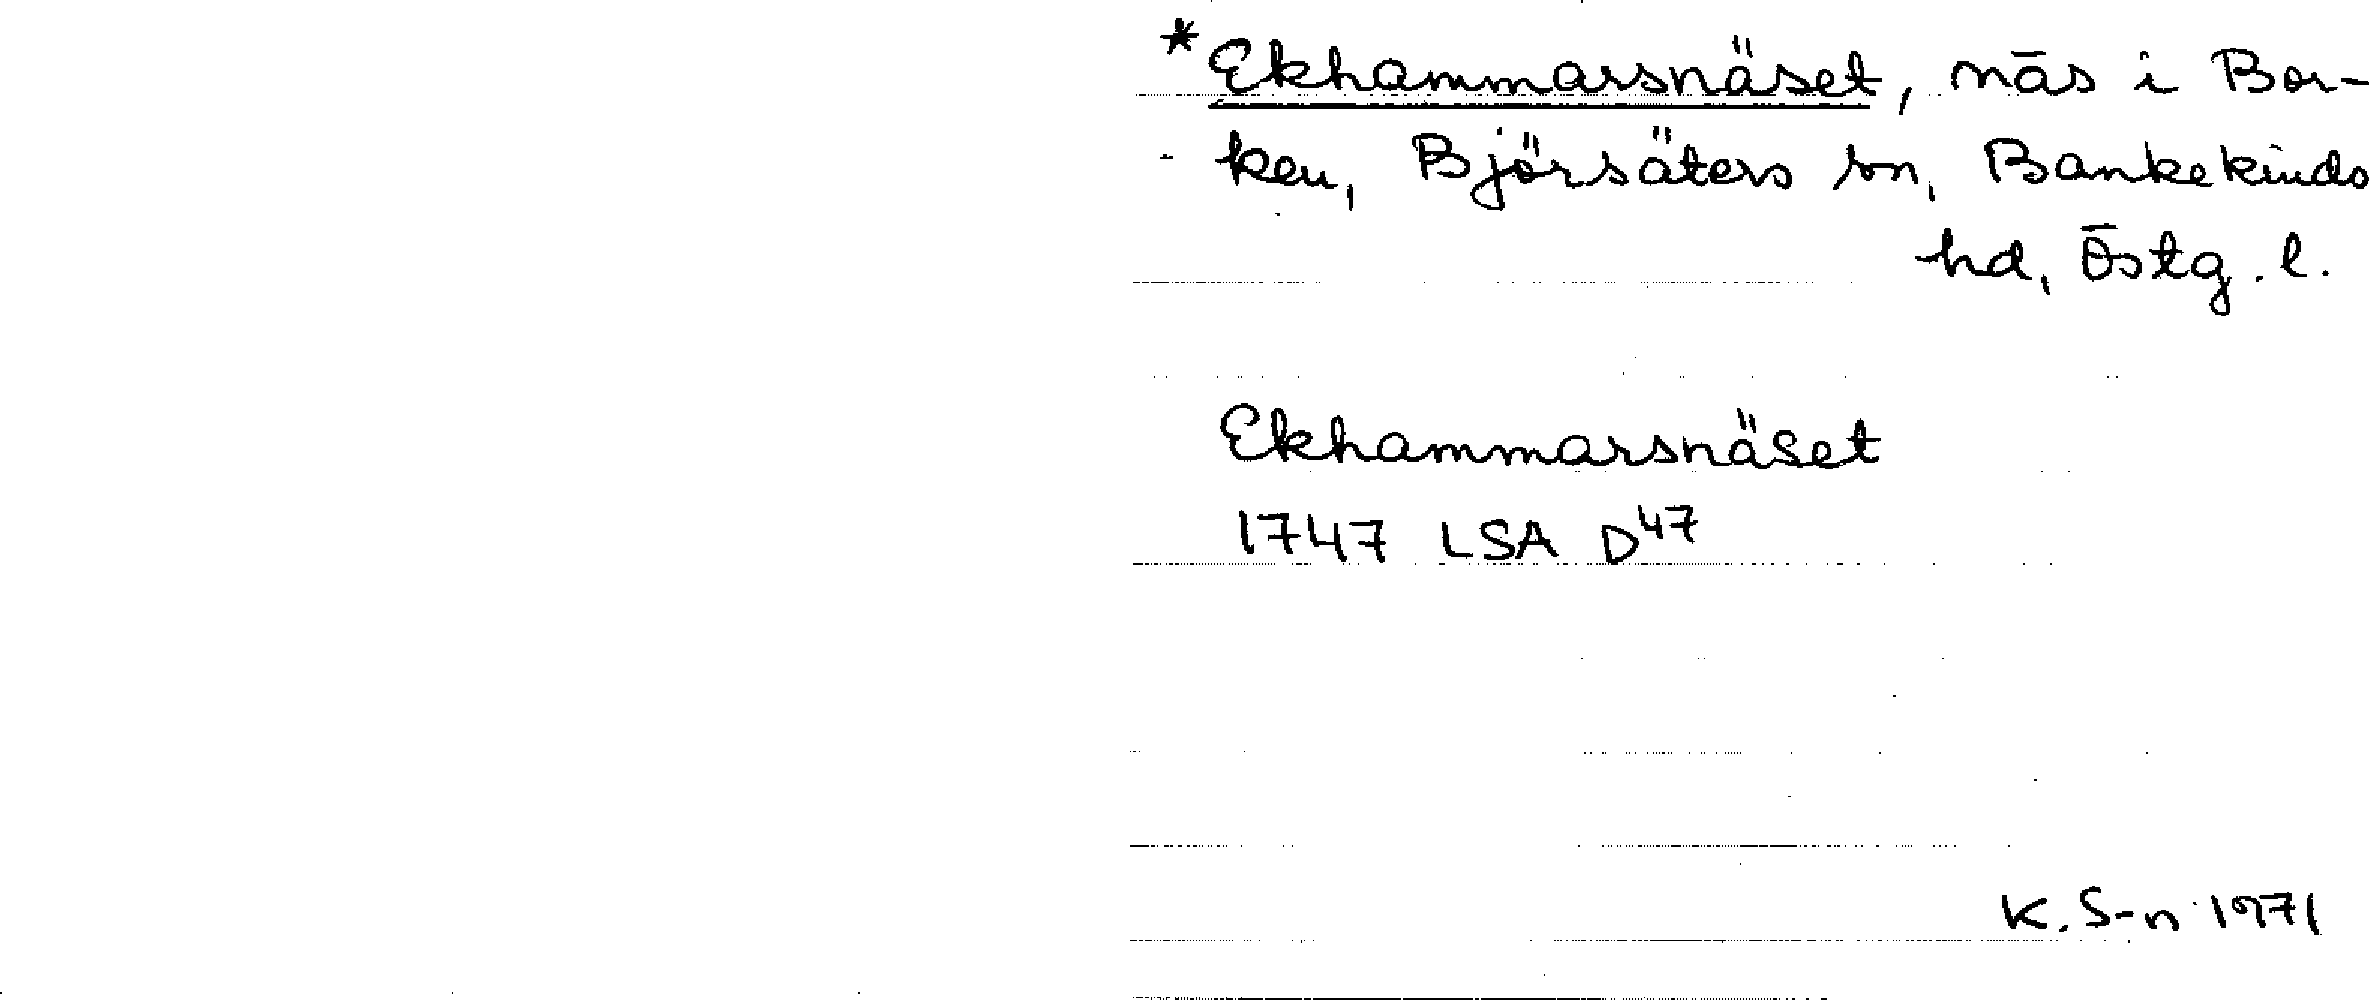 *Ekhammarsnäset, näs i Bor-
ken, Björsäters sn, Bankekinds
hd, Östg. l.
Ekhammarsnäset
1747 LSA D47
K. S-n 1971